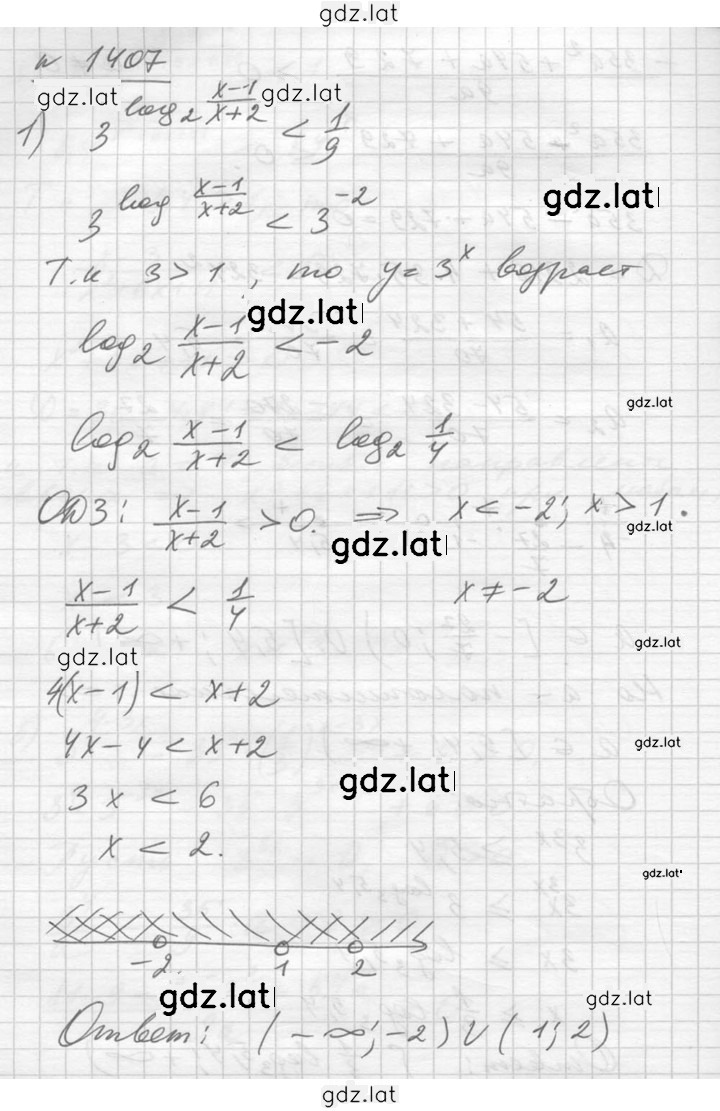 gdz.lat
n 1407
gdz.lat gdz.lat
1) 3^(log₂ (x-1)/(x+2)) < 1/9
3^(log (x-1)/(x+2)) < 3^-2
gdz.lat
Т.к 3 > 1, то y = 3^x возраст
gdz.lat
log₂ (x-1)/(x+2) < -2
gdz.lat
log₂ (x-1)/(x+2) < log₂ 1/4
ОДЗ: (x-1)/(x+2) > 0. ⇒ x < -2; x > 1.
gdz.lat
gdz.lat
(x-1)/(x+2) < 1/4 x ≠ -2
gdz.lat
gdz.lat
4(x-1) < x+2
4x-4 < x+2
gdz.lat
gdz.lat
3x < 6
x < 2.
gdz.lat
-2. 1 2
gdz.lat
gdz.lat
Ответ: (-∞; -2) ∪ (1; 2)
gdz.lat